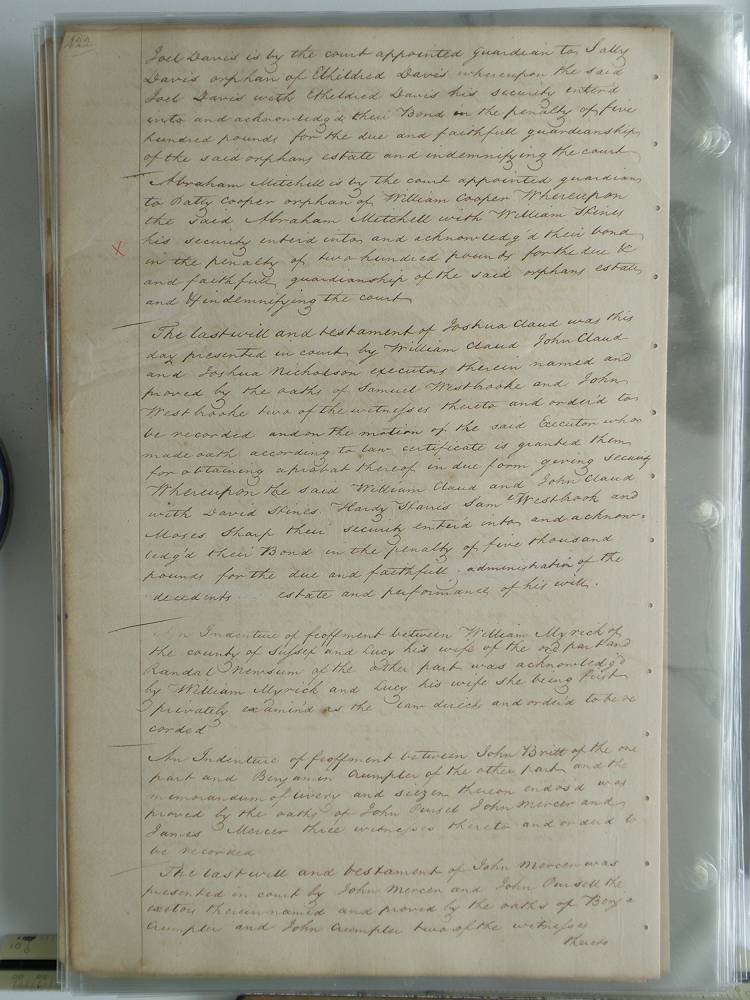 122
Joel Davis is by the court appointed guardian to Sally
Davis orphan of Etheldred Davis whereupon the said
Joel Davis with Etheldred Davis his security enter'd
into and acknowledg'd their Bond in the penalty of five
hundred pounds for the due and faithfull guardianship
of the said orphans estate and indemnifying the court
Abraham Mitchell is by the court appointed guardian
to Patty Cooper orphan of William Cooper Whereupon
the said Abraham Mitchell with William Skines
his security enter'd into and acknowledg'd their bond
in the penalty of two hundred pounds for the due &
and faithfull guardianship of the said orphans estate
and indemnifying the court
The last will and testament of Joshua Claud was this
day presented in court by William Claud John Claud
and Joshua Nicholson executors therein named and
proved by the oaths of Samuel Westbrooke and John
Westbrooke two of the witnesses thereto and order'd to
be recorded and on the motion of the said Executor who
made oath according to law certificate is granted them
for obtaining a probat thereof in due form giving security
Whereupon the said William Claud and John Claud
with David Skines Hardy Harris Sam Westbrook and
Moses Sharp their security enter'd into and acknow=
ledg'd their Bond in the penalty of five thousand
pounds for the due and faithfull administration of the
decedents estate and performance of his will.
An Indenture of feoffment between William Myrick of
the county of Sussex and Lucy his wife of the one part and
Randal Newsum of the other part was acknowledg'd
by William Myrick and Lucy his wife she being first
privately examin'd as the law directs and order'd to be re
corded
An Indenture of feoffment between John Britt of the one
part and Benjamin Crumpler of the other part and the
memorandum of livery and seizen thereon endors'd was
proved by the oaths of John Pursel John Mercer and
James Mercer three witnesses thereto and order'd to
be recorded
The last will and testament of John Mercer was
presented in court by John Mercer and John Pursell the
exetors therein named and proved by the oaths of Benj
Crumpler and John Crumpler two of the witnesses
thereto